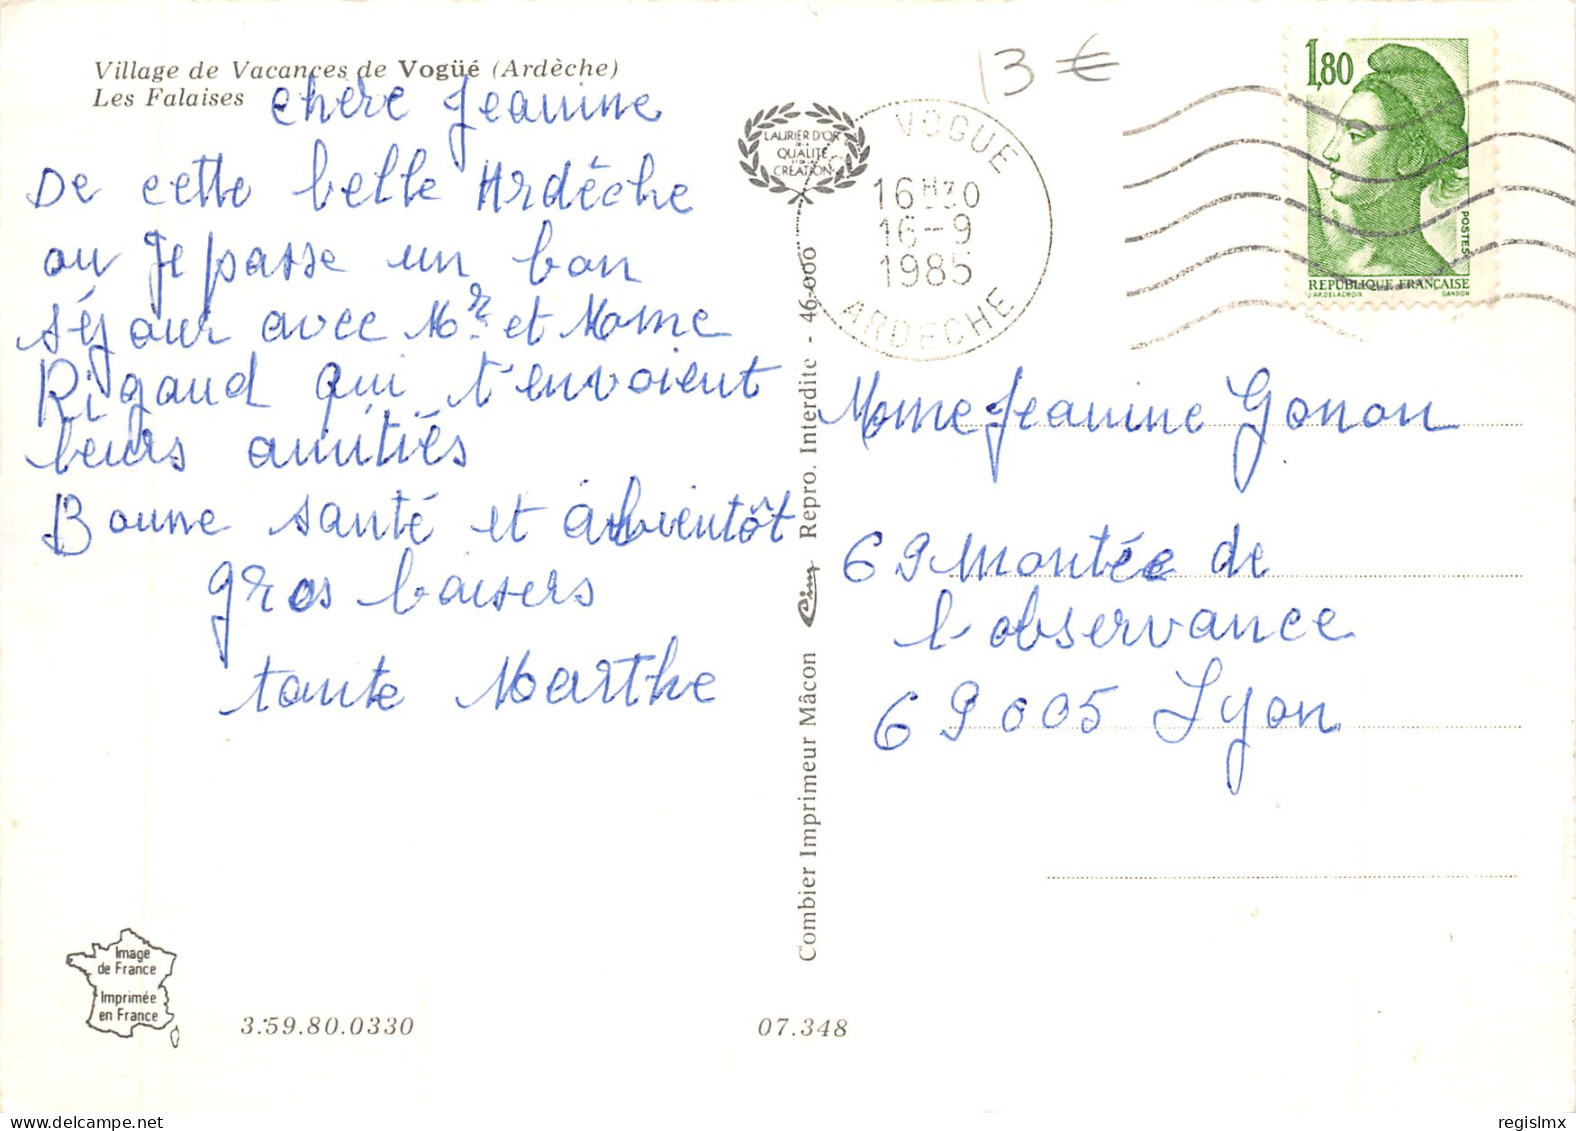 Village de Vacances de Vogüé (Ardèche)
Les Falaises
chère Jeanine
De cette belle Ardèche
ou Je passe un bon
séjour avec Mr et Mome
Rigaud qui t'envoient
leurs amitiés
Bonne santé et abientôt
gros baisers
tante Marthe
Image
de France
Imprimée
en France
3.59.80.0330
07.348
Combier Imprimeur Mâcon Cim Repro. Interdite - 46-000
LAURIER D'OR
DE LA
QUALITÉ
ET DE LA
CRÉATION
13 €
VOGUE
16H30
16-9
1985
ARDECHE
1,80
POSTES
REPUBLIQUE FRANÇAISE
D'AP. DELACROIX GANDON
Mome Jeanine Gonon
69 Montée de
l'observance
69005 Lyon
regislmx